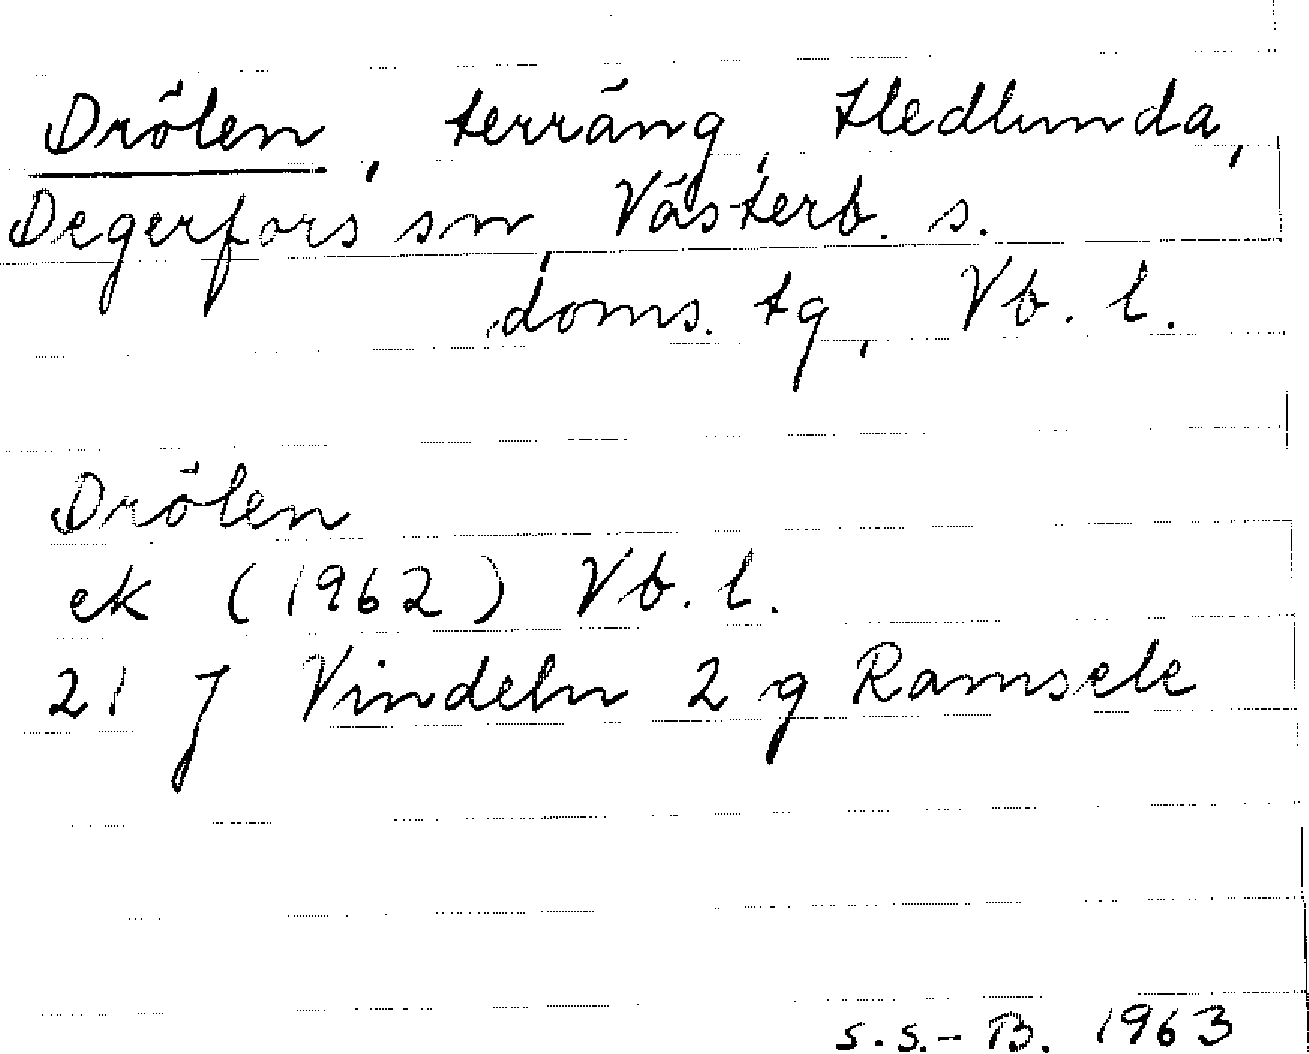 Drölen, terräng, Hedlunda,
Degerfors sn, Västerb. s.
doms. tg, Vb. l.
Drölen
ek (1962) Vb. l.
21 J Vindeln 2 g Ramsele
S.S.-B. 1963